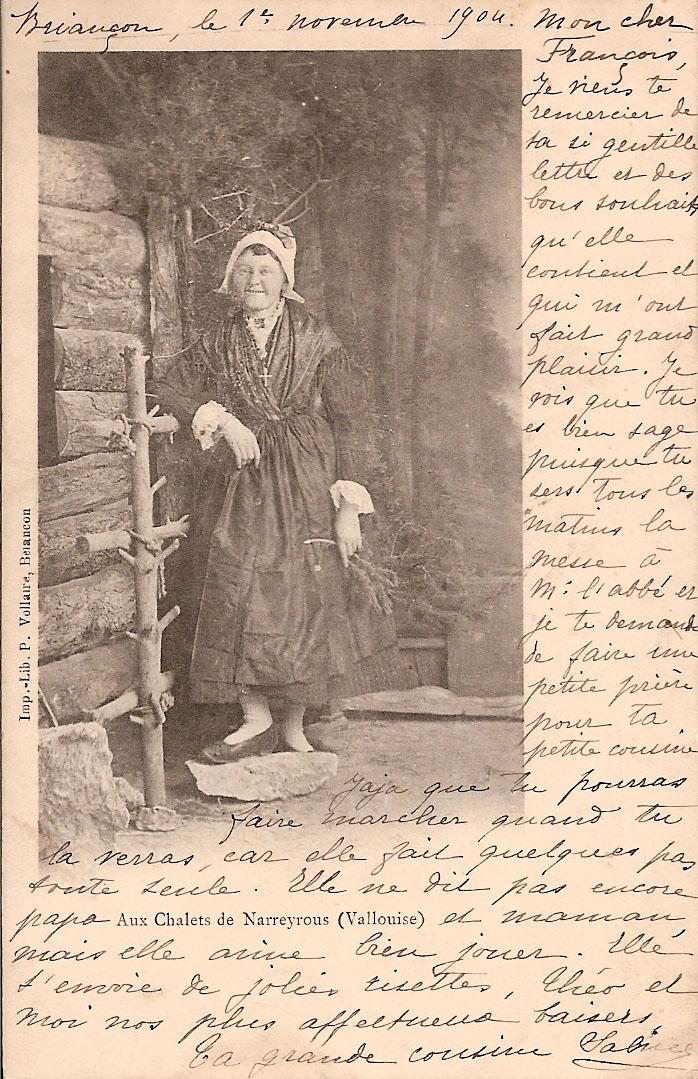 Briançon, le 1er novembre 1904. Mon cher
François,
Je viens te
remercier de
ta si gentille
lettre et des
bons souhaits
qu'elle
contient et
qui m'ont
fait grand
plaisir. Je
vois que tu
es bien sage
puisque tu
sers tous les
matins la
messe à
Mr l'abbé et
je te demande
de faire une
petite prière
pour ta
petite cousine
Jaja que tu pourras
faire marcher quand tu
la verras, car elle fait quelques pas
toute seule. Elle ne dit pas encore
papa Aux Chalets de Narreyrous (Vallouise) et maman,
mais elle aime bien jouer. Elle
t'envoie de jolies risettes, Théo et
moi nos plus affectueux baisers,
Ta grande cousine
Imp.-Lib. P. Vollaire, Briançon